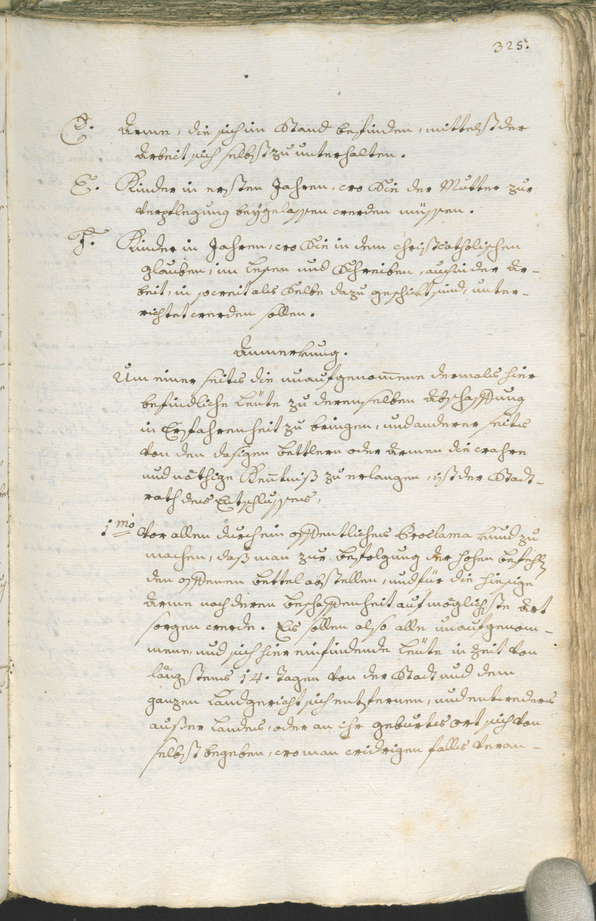 325.
D. Arme, die sich im Stand befinden, mittelst der
Arbeit sich selbst zu unterhalten.
E. Kinder in ersten Jahren, wo Sie der Mutter zur
Verpflegung beygelassen werden müssen.
F. Kinder in Jahren, wo Sie in dem christcatholischen
Glauben, im Lesen und Schreiben, auch in der Ar-
beit, in soweit als Selbe dazu geschickt sind, unter-
richtet werden sollen.
Anmerkung.
Um einer seits die unaufgenom̅ene dermals hier
befindliche Leüte zu derenselben Abschaffung
in Erfahrenheit zu bringen, und anderer seits
von den dasigen Bettlern oder Armen die wahre
und nöthige Kentniß zu erlangen, ist der Stadt-
rath des Entschlusses,
1mo Vor allen durch ein offentliches Proclama kund zu
machen, daß man zur Befolgung der hohen Befehle
den offenen Bettel abstellen, und für die hiesige
Arme nach deren Beschaffenheit auf möglichste Art
sorgen werde. Es sollen also alle unaufgenom-
mene, und sich hier einfindende Leüte in Zeit von
längstens 14. Tagen von der Stadt und dem
ganzen Landgericht sich entfernen, und entweders
ausser Landes, oder an ihr Geburtsort sich von
selbst begeben, wo man widrigen falls veran-